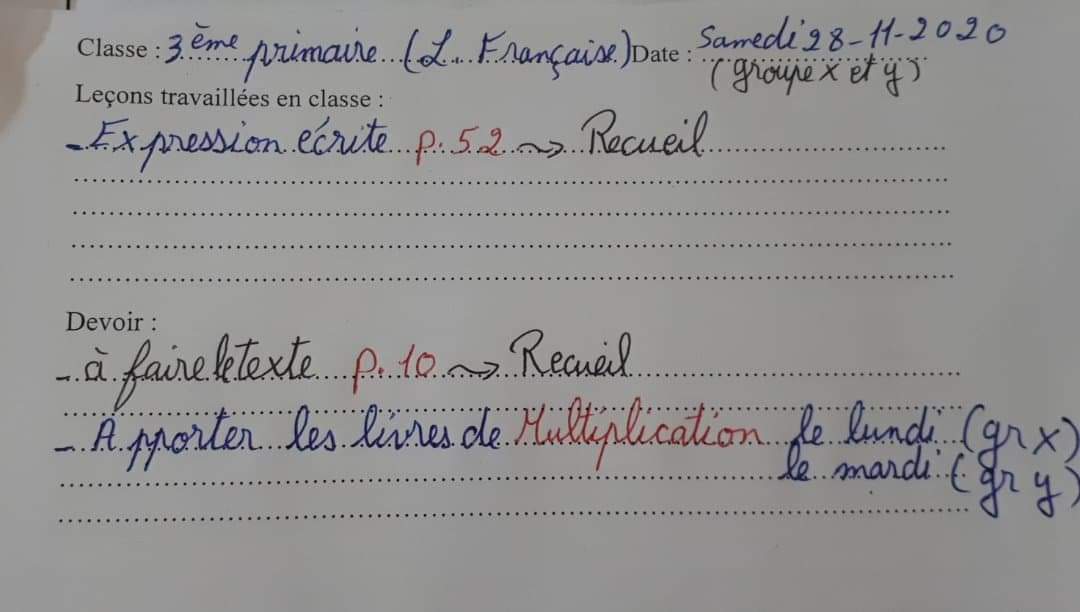 Classe : 3ème primaire (L. Française) Date : Samedi 28-11-2020
(groupe x et y)
Leçons travaillées en classe :
- Expression écrite p. 52 → Recueil
Devoir :
- à faire le texte p. 10 → Recueil
- Apporter les livres de Multiplication le lundi (gr x)
le mardi (gr y)